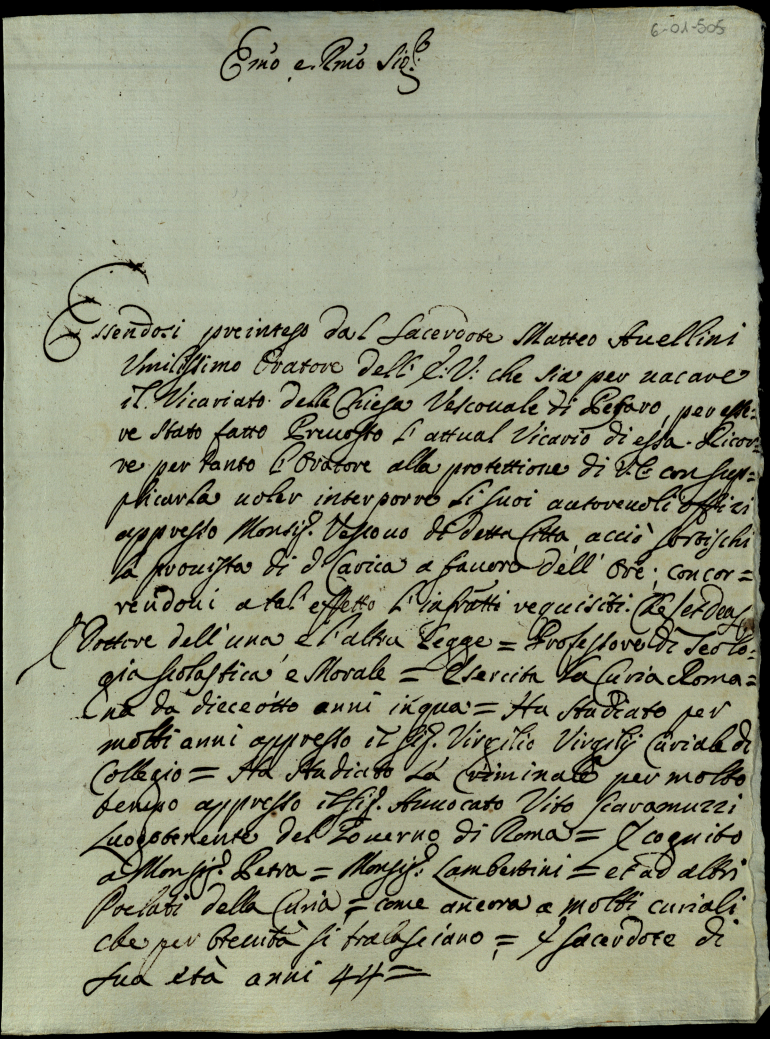 6-01-505
Emo e Rmo Sig.re
Essendosi preinteso dal Sacerdote Matteo Auellini
Vmilissimo Oratore dell' E: V: che sia per uacare
il Vicariato della Chiesa Vescouale di Pesaro, per esse=
re stato fatto Preuosto l'attual Vicario di essa. Ricor=
re per tanto l'Oratore alla protettione di V.E. con sup=
plicarla uoler interporre li suoi autoreuoli offizi
appresso Monsig.r Vescouo di detta Città, acciò sortischi
la prouista di d. Carica a fauore dell' Ore; concor=
rendoui a tal' effetto l'infratti requisiti. Che &c Deus
E Dottore dell' una, e l'altra Legge = Professore di Teolo=
gia scolastica, e Morale = Esercita la Curia Roma=
na da dieceotto anni inqua = Ha studiato per
molti anni appresso il Sig.r Virgilio Virgilij Curiale di
Collegio = Ha studiato la Criminale per molto
tempo appresso il Sig.r Auuocato Vito Scaramuzzi
Luogotenente del Gouerno di Roma = E cognito
a Monsig.r Petra = Monsig.r Lambertini = et ad altri
Prelati della Curia = come ancora a molti curiali
che per breuità si tralasciano = E sacerdote di
sua età anni 44 =